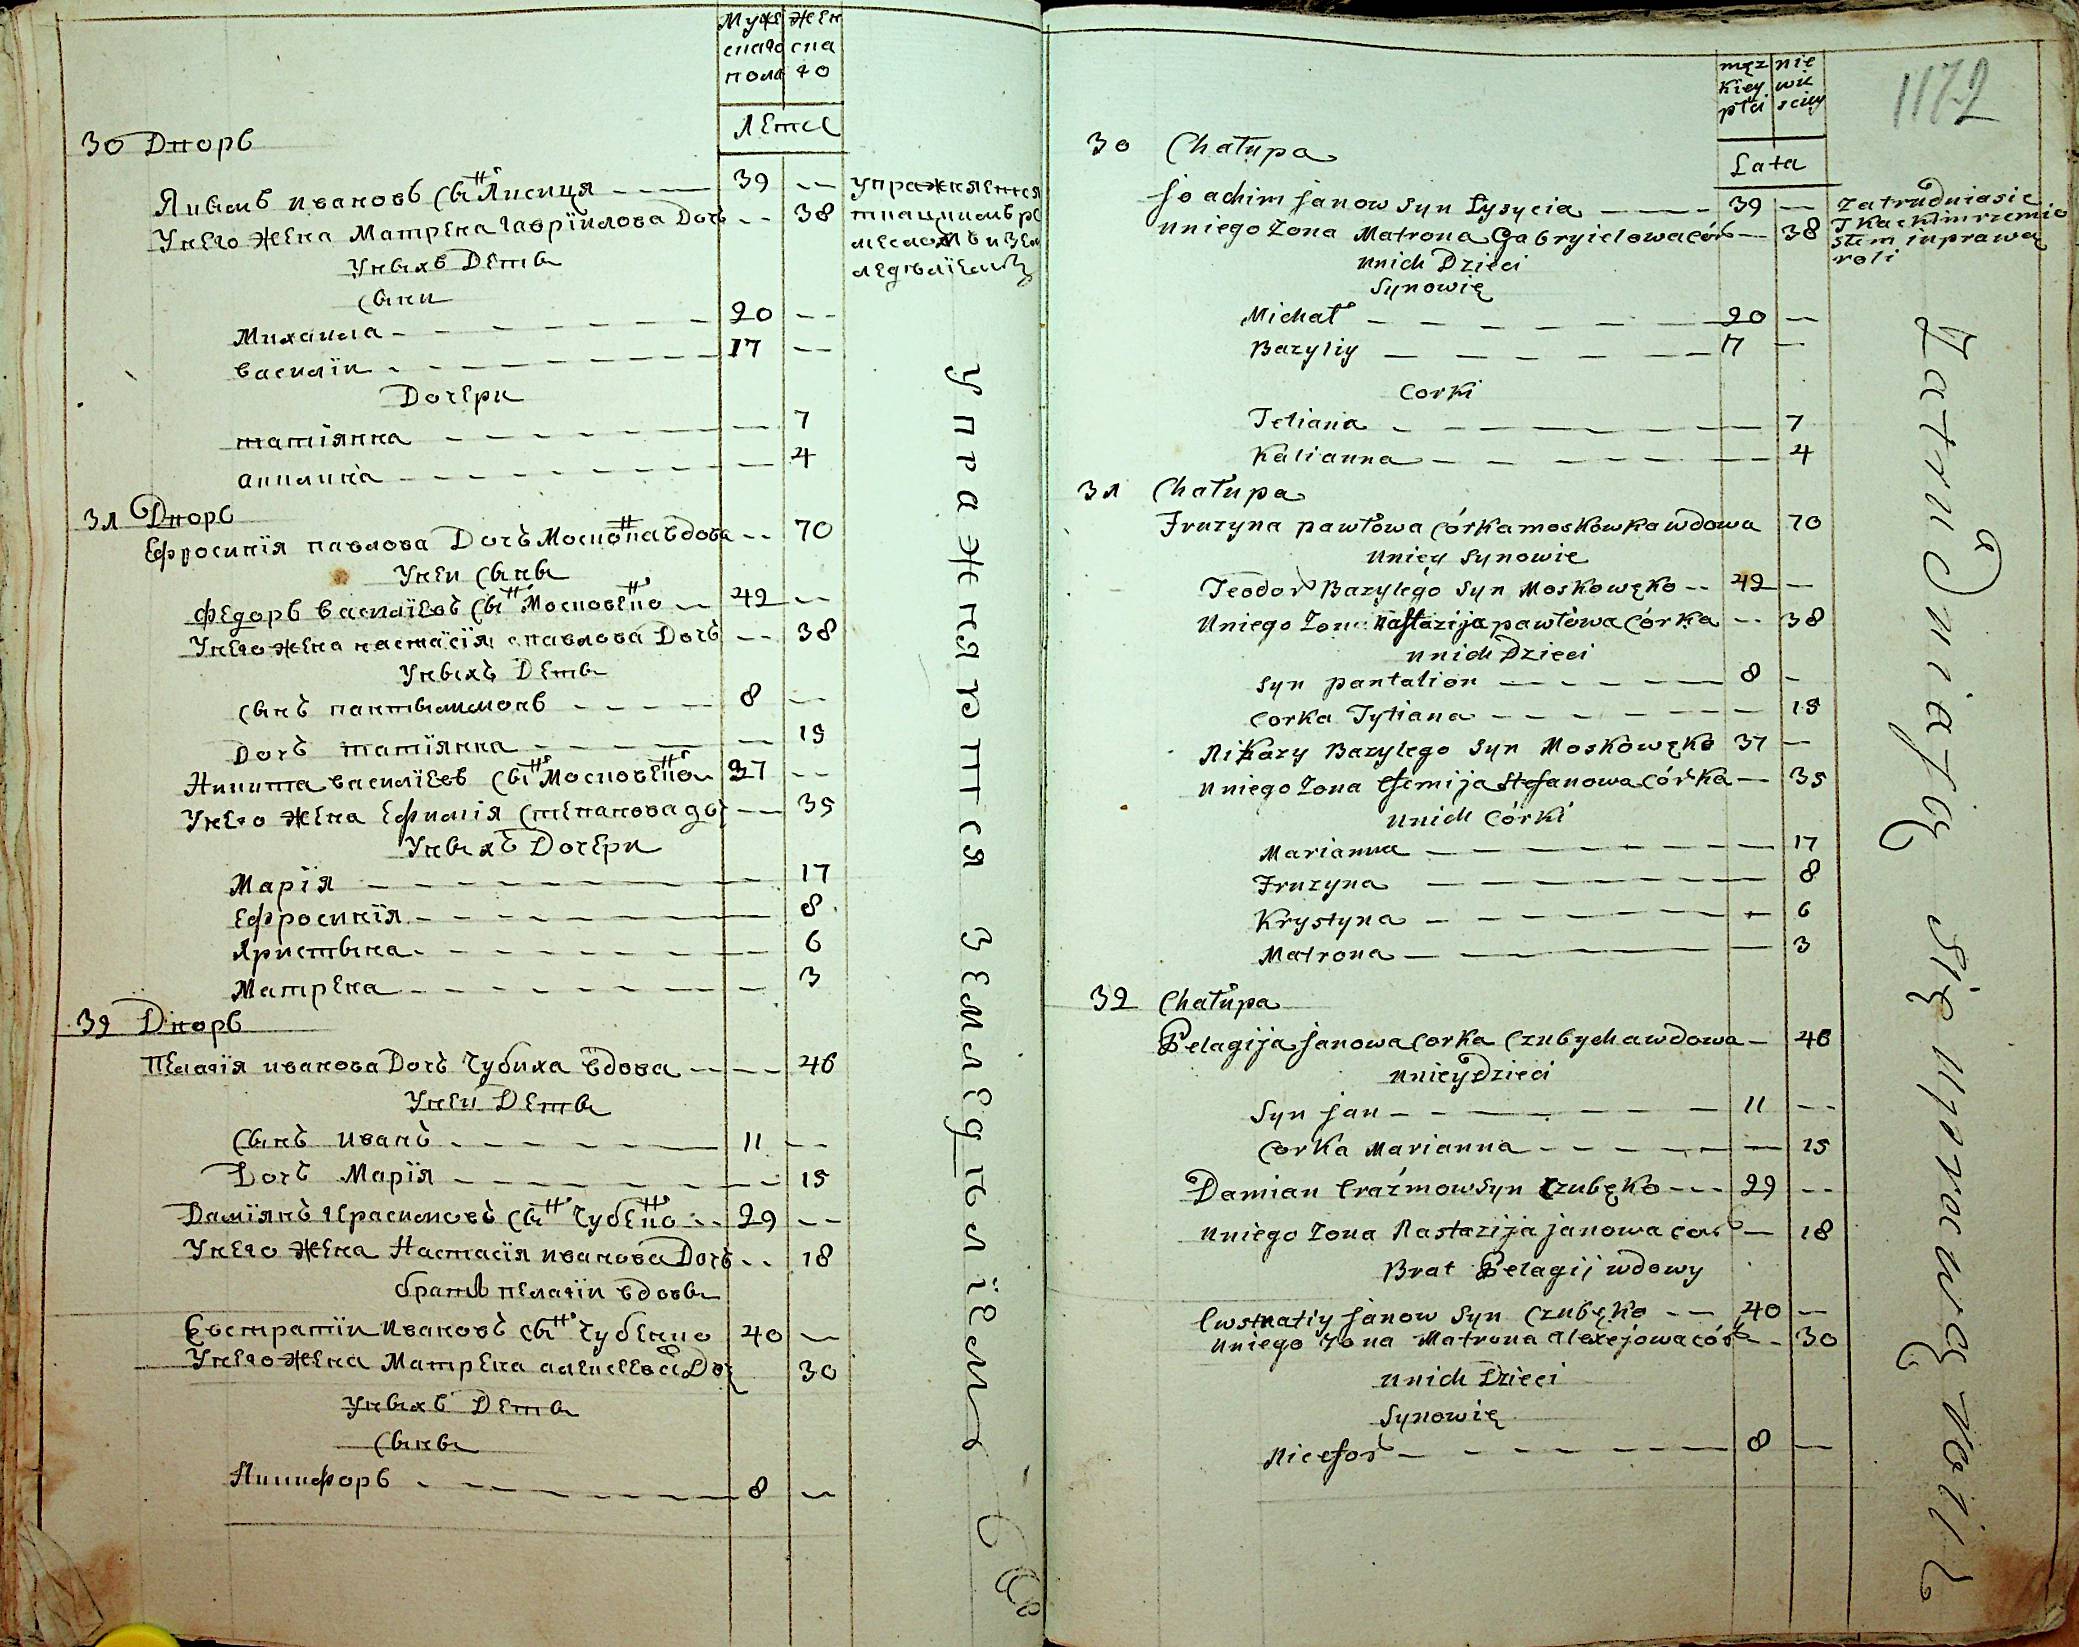 Муже жен
скаго ска
пола го
Лета
30 Дворъ
Якимъ Ивановъ Сынъ Лисиця 39 --
Унего Жена Матрена Гавріилова Дочь -- 38
Унихъ Дети
Сыни
Михаила 20 --
Василій 17 --
Дочери
Татіянна 7
Аннинка 4
31 Дворъ
Ефросинія Павлова Дочъ Московка Вдова -- 70
Уней Сыны
Федоръ Василіевъ Сынъ Московенко 42 --
Унего Жена Настасія Павлова Дочъ -- 38
Унихъ Дети
Сынъ Пантылимонъ 8 --
Дочъ Татіянна 15
Никита Василіевъ Сынъ Московенко 37 --
Унего Жена Ефимія Степанова доч -- 35
Унихъ Дочери
Марія 17
Ефросинія 8
Христына 6
Матрена 3
32 Дворъ
Пелагія Иванова Дочъ Чубиха Вдова 46
Уней Дети
Сынъ Иванъ 11 --
Дочъ Марія 15
Даміянъ Ирасимовъ Сынъ Чубенко 29 --
Унего Жена Настасія Иванова Дочъ -- 18
братъ Пелагіи вдовы
Евстратій Ивановъ Сынъ Чубенко 40 --
Унего Жена Матрена Алексеева Доч 30
Унихъ Дети
Сыны
Никифоръ 8 --
упражняется
ткацкимъ ре
месломъ и зем
леделіемъ
упражняютъся земледъліемъ
1172
męz nie
kiey wie
płci sciey
Lata
30 Chałupa
Joachim Janow Syn Łysycia 39 --
Uniego Zona Matrona Gabryielowa Cór -- 38
Unich Dzieci
Synowię
Michał 20 --
Bazyliy 17 --
Corki
Tetiana 7
Kalianna 4
31 Chałupa
Fruzyna pawłowa Córka moskowka wdowa 70
Uniey Synowie
Teodor Bazylego Syn Moskowęko -- 42 --
Uniego Zona Nastazija pawłowa Córka -- 38
Unich Dzieci
Syn pantalion 8 --
Corka Tytiana 15
Nikazy Bazylego Syn Moskowęko 37 --
Uniego Zona Efemija Stefanowa Córka -- 35
Unich Córki
Marianna 17
Fruzyna 8
Krystyna 6
Matrona 3
32 Chałupa
Pelagija Janowa Corka Czubycha wdowa 46
Uniey Dzieci
Syn Jan 11 --
Corka Marianna 15
Damian Erazmow Syn Czubęko 29 --
Uniego Zona Nastazija Janowa Cor -- 18
Brat Pelagij wdowy
Ewstratiy Janow Syn Czubęko -- 40 --
Uniego Zona Matrona Alexejowa Cór -- 30
Unich Dzieci
Synowię
Nicefor 8 --
zatrudnia sie
Tkackim rzemio
słem i uprawą
roli
Zatrudniają się uprawą roli